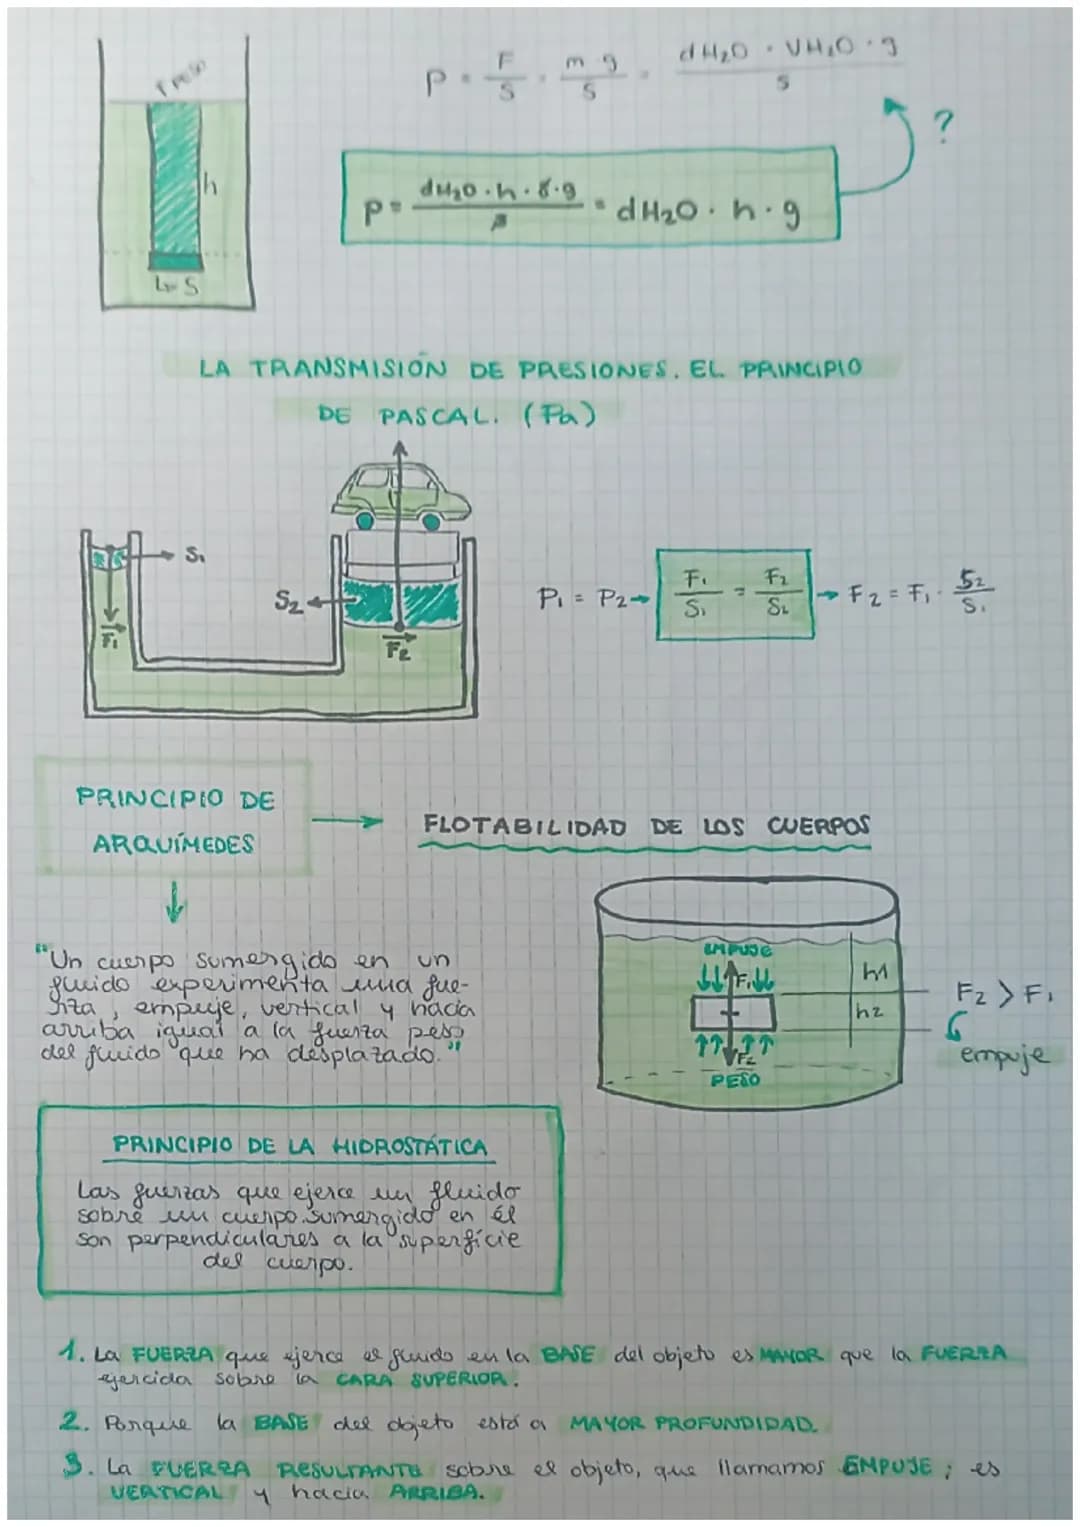 PESO
h
S
P = F/S = m·g/S = dH₂O · VH₂O · g / S
?
P = dH₂O · h · S · g / S = dH₂O · h · g
LA TRANSMISIÓN DE PRESIONES. EL PRINCIPIO
DE PASCAL. (Pa)
S₁
S₂
F₁
F₂
P₁ = P₂ → F₁/S₁ = F₂/S₂ → F₂ = F₁ · S₂/S₁
PRINCIPIO DE
ARQUÍMEDES
→ FLOTABILIDAD DE LOS CUERPOS
"Un cuerpo sumergido en un
fluido experimenta una fue-
rza, empuje, vertical y hacia
arriba igual a la fuerza peso
del fluido que ha desplazado."
EMPUJE
F₁
h1
h2
F₂
PESO
F₂ > F₁
empuje
PRINCIPIO DE LA HIDROSTÁTICA
Las fuerzas que ejerce un fluido
sobre un cuerpo sumergido en él
son perpendiculares a la superfície
del cuerpo.
1. La FUERZA que ejerce el fluido en la BASE del objeto es MAYOR que la FUERZA
ejercida sobre la CARA SUPERIOR.
2. Porque la BASE del objeto está a MAYOR PROFUNDIDAD.
3. La FUERZA RESULTANTE sobre el objeto, que llamamos EMPUJE; es
VERTICAL y hacia ARRIBA.